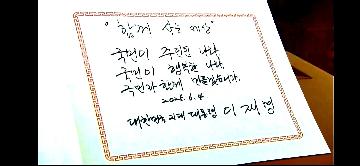 "함께 사는 세상"
국민이 주인인 나라
국민이 행복한 나라
국민과 함께 만들겠습니다.
2025. 6. 4
대한민국 21대 대통령 이재명